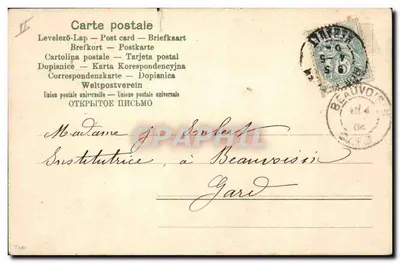 Carte postale
Levelező-Lap — Post card — Briefkaart
Brefkort — Postkarte
Cartolina postale — Tarjeta postal
Dopisnice — Karta Korespondencyjna
Correspondenzkarte — Dopisnica
Weltpostverein
Union postale universelle — Unione postale universale
ОТКРЫТОЕ ПИСЬМО
BEAUVOISIN
04
GARD
Madame
Institutrice, à Beauvoisin
Gard